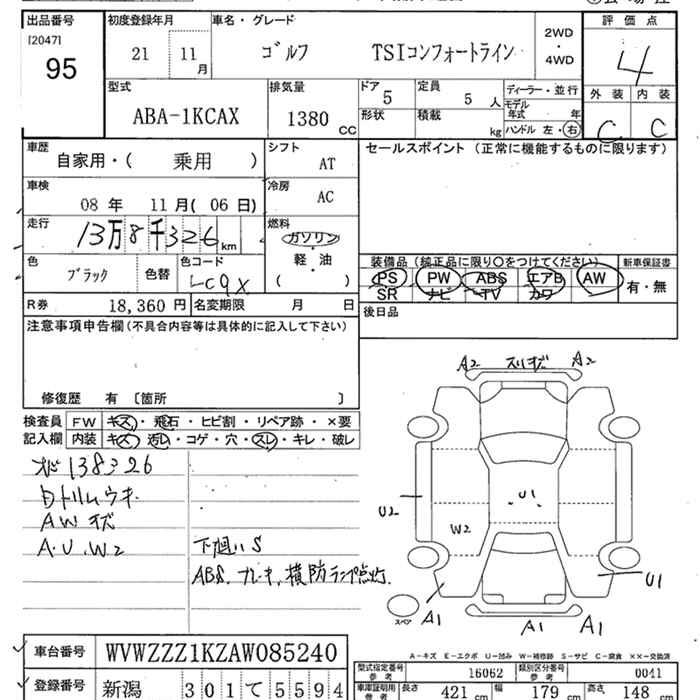 出品番号
[2047]
95
初度登録年月
21 11月
車名・グレード
ゴルフ TSIコンフォートライン
2WD
・
4WD
評価点
4
外装 内装
C C
型式
ABA-1KCAX
排気量
1380 CC
ドア
5
形状
定員
5 人
積載
kg
ディーラー・並行
モデル年式 年
ハンドル 左・右
車歴
自家用・( 乗用 )
シフト
AT
セールスポイント (正常に機能するものに限ります)
車検
08年 11月(06日)
冷房
AC
走行
13万8千326km
燃料
ガソリン
軽・油
( )
色
ブラック
色替
色コード
LC9X
装備品 (純正品に限り〇をつけてください)
PS PW ABS エアB AW
SR ナビ TV カワ
新車保証書
有・無
R券 18,360円
名変期限 月 日
後日品
注意事項申告欄(不具合内容等は具体的に記入して下さい)
修復歴 有 〔箇所 〕
検査員
記入欄
FW キズ・飛石・ヒビ割・リペア跡・×要
内装 キズ・汚レ・コゲ・穴・スレ・キレ・破レ
138326
内トリムウキ
AWキズ
A.U.W2
下廻りS
ABS、ブレーキ、横防ランプ点灯
A2 スリキズ A2
U2
U1
W2
U1
A1
スペア
A1
A1
A-キズ E-エクボ U-凹み W-補修跡 S-サビ C-腐食 ××-交換済
車台番号 WVWZZZ1KZAW085240
登録番号 新潟 301て5594
型式指定番号
参考
16062
類別区分番号
参考
0041
車庫証明用
参考
長さ 421cm 幅 179cm 高さ 148cm